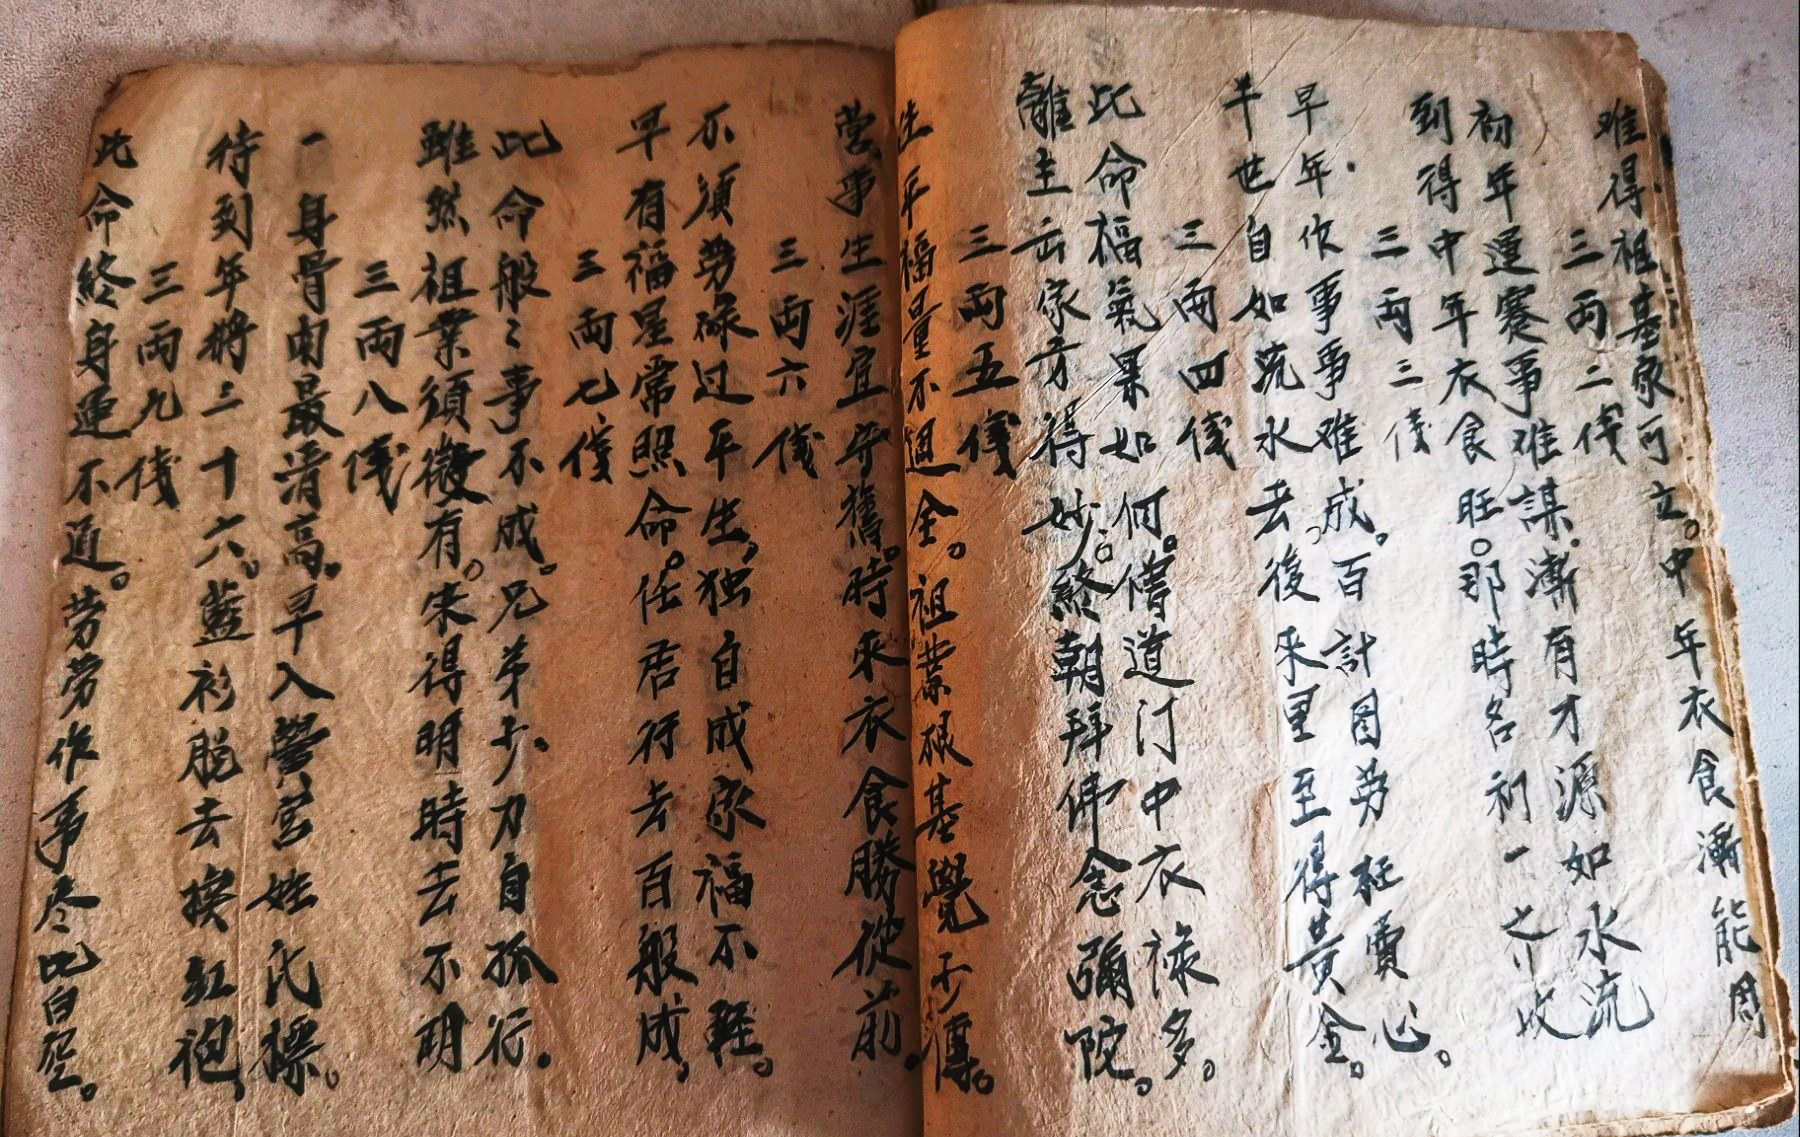 难得祖基家可立。中年衣食漸能周
三両二伐
初年運蹇事难謀.漸有才源如水流
到得中年衣食旺。那時名利一之介收
三両三伐
早年作事事难成。百計图劳枉費心。
半世自如流水去，後来里至得黄金。
三両四伐
此命福氣果如何。僧道门中衣禄多。
離主岳家方得妙。終朝拜佛念彌陀。
三両五伐
生平福量不週全。祖業根基覺少傳。
营事生涯宜守舊。時來衣食勝從前。
三両六伐
不須劳碌过平生，独自成家福不輕。
早有福星常照命。任君行去百般成，
三両七伐
此命般〻事不成。兄弟少力自孤行.
雖然祖業須微有。來得明時去不明
三両八伐
一身骨肉最清高。早入黌宫姓氏標。
待到年將三十六。藍衫脱去换紅袍，
三両九伐
此命終身運不通。劳劳作事尽皆空。